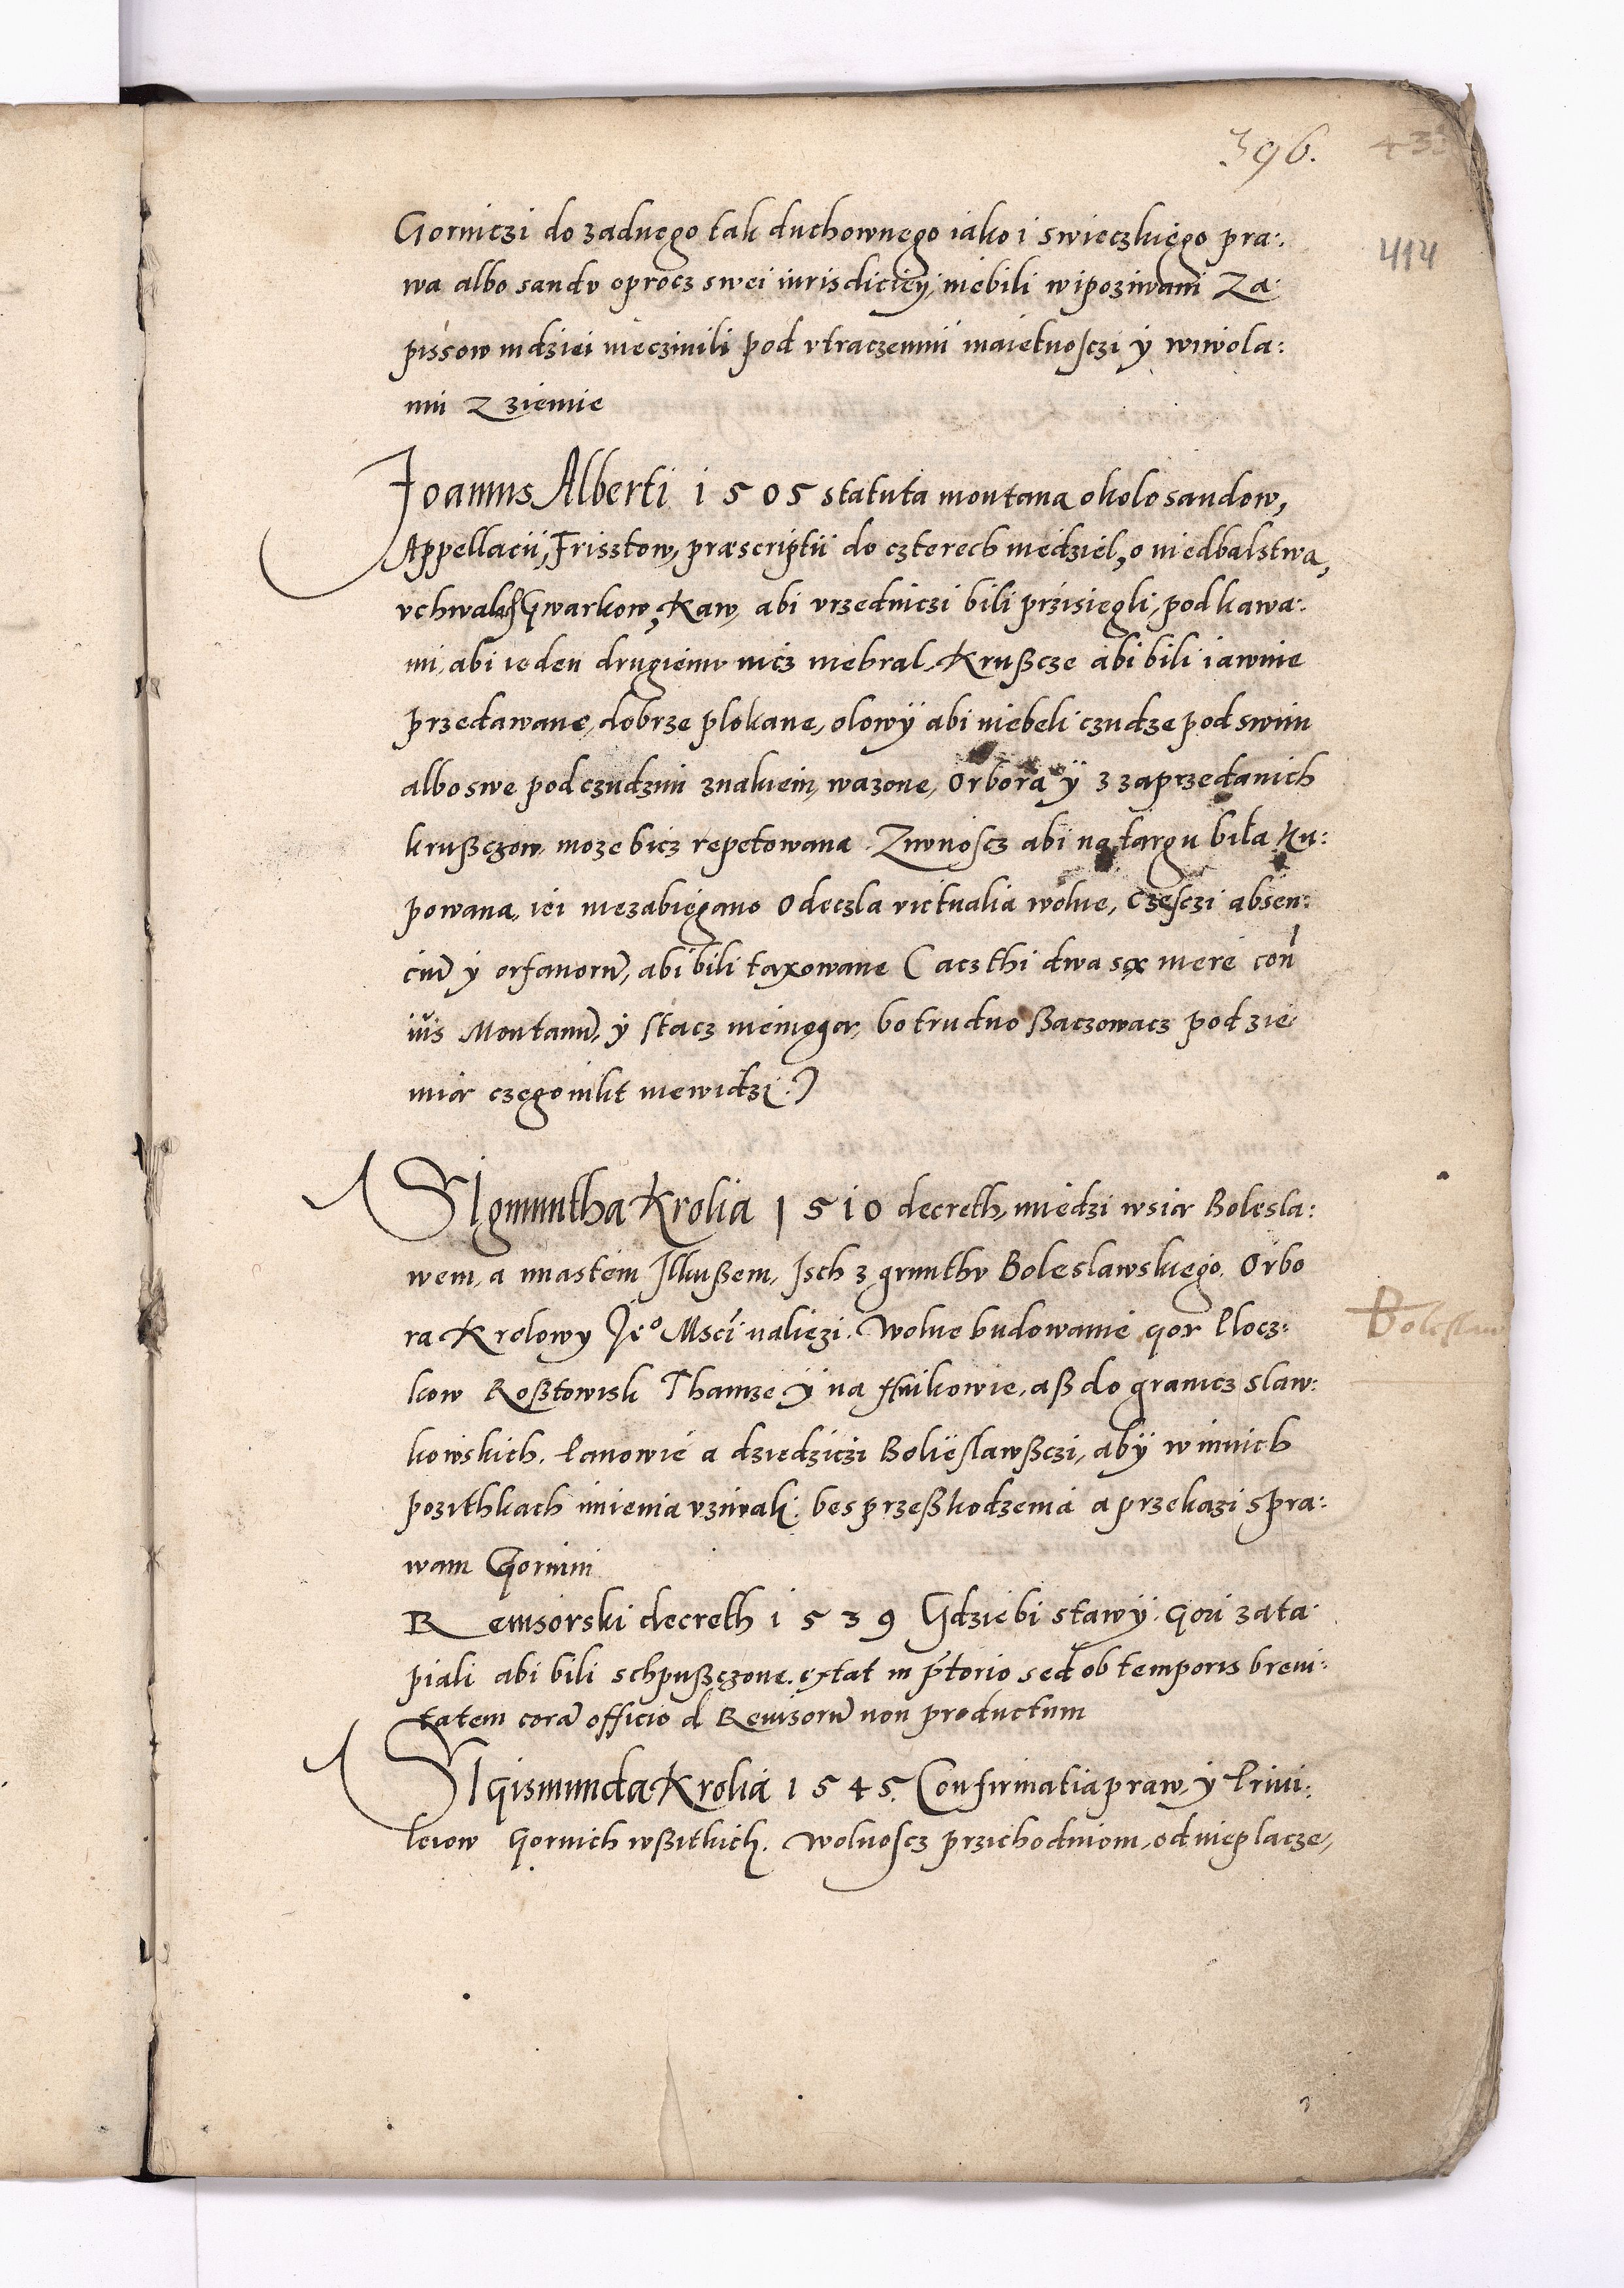 396.
414
Gorniczi do zadnego tak duchownego iako i swieczkiego pra:
wa albo sandv oprocz swei iurisdiciey, niebili wipoziwani Za:
pissow indziei nieczinili pod vtraczenim maietnosczi ÿ wiwola:
nim z ziemie
Joannis Alberti 1505 statuta montana okolo sandow,
Appellacii, Frisztow, præscriptii do czterech niedziel, o niedbalstwa,
vchwalh Gwarkow, Kaw, abi vrzedniczi bili przisiegli, pod kawa:
mi, abi ieden drugiemv nicz niebral, Krußcze abi bili iawnie
przedawane, dobrze plokane, olowÿ abi niebeli czudze pod swim
albo swe pod czudzim znakiem, wazone, Orbora ÿ z zaprzedanich
krußczow moze bicz repetowana. Ziwnoscz abi na targu biła ku:
powana, iei niezabiegano Odeczla victualia wolne, Czesczi absen:
ciũ ÿ orfanorũ, abi bili taxowane (acz thi dwa sx mere con
ius Montanũ, ÿ stacz niemoga, bo trudno ßaczowacz pod zie:
mia czego nikt niewidzi.)
Sigmuntha Krolia 1510 decreth, miedzi wsia Bolesla:
wem, a miastem Ilkußem, Isch z grunthv Boleslawskiego. Orbo
ra Krolowy Jeº Msći naliezi. Wolne budowanie gor Plocz:
kow Roßtowisk Thamze ÿ na ffnikowie, aß do granicz slaw:
kowskich. Panowie a dziedziczi Bolieslawßczi, abÿ w innich
pozithkach imienia vziwali, bes przeßkodzenia a przekazi spra:
wam Gornim
Remsorski decreth 1539 Gdziebi stawÿ Gori zata:
piali abi bili schpußczone. extat in p̃torio sed ob temporis breui:
tatem corã officio d Reuisorũ non productum
Sigismunda Krolia 1545. Confirmatia praw, ÿ Priui:
leiow Gornich wßitkich. Wolnoscz przichodniom, od nieplacze,